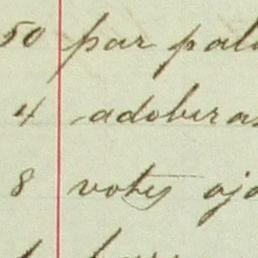 50 par pal
4 adoberas
8 votes ojo